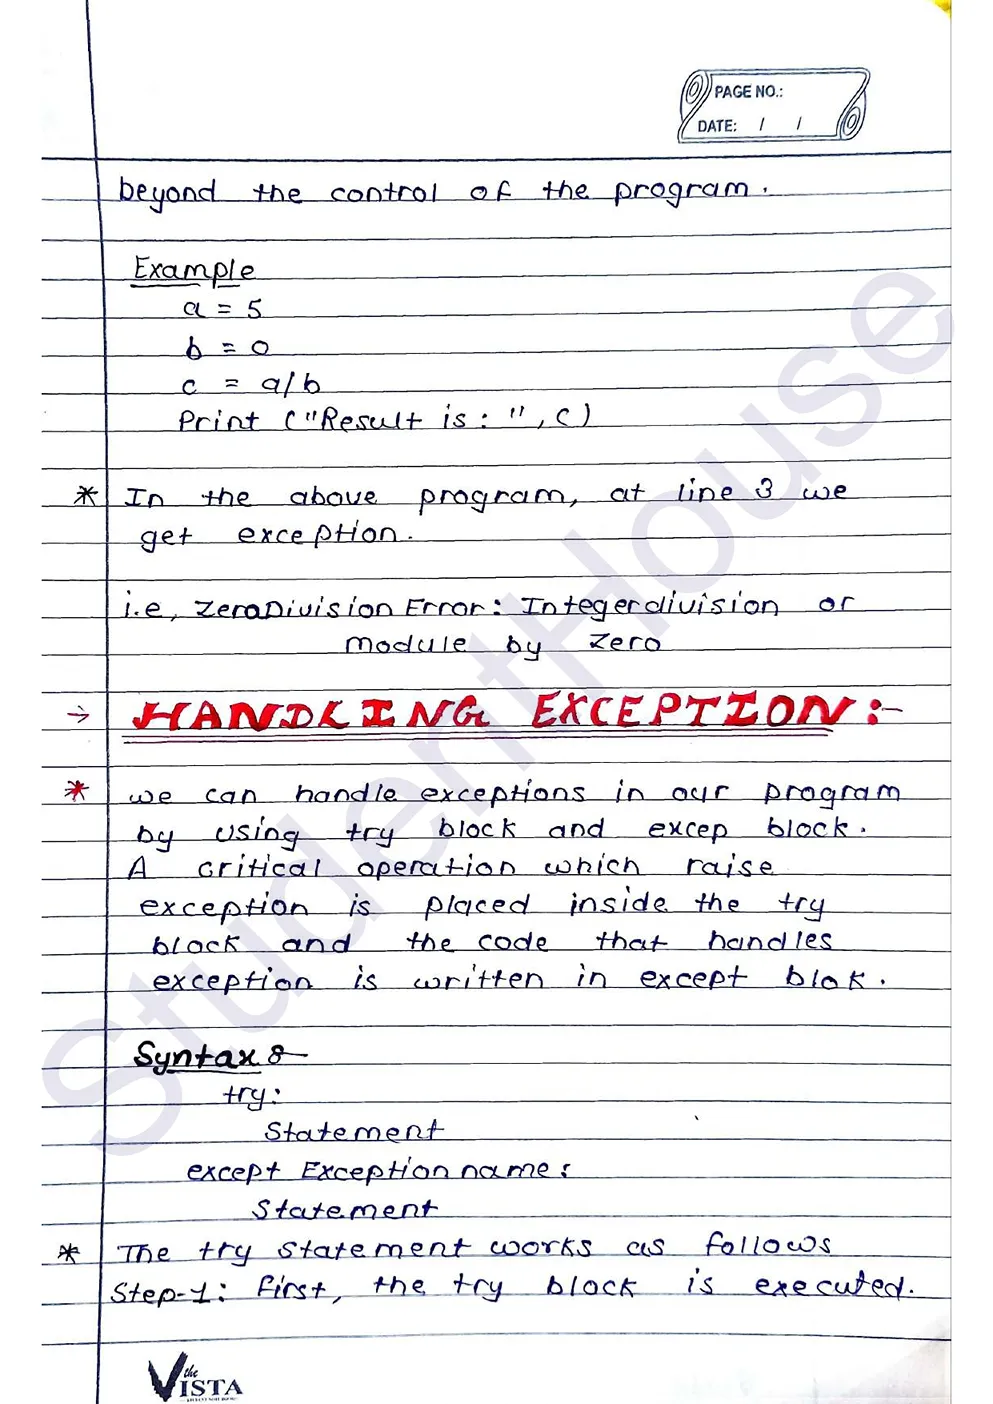 PAGE NO.:
DATE: / /
beyond the control of the program.
Example
a = 5
b = 0
c = a/b
Print ("Result is : ", c)
* In the above program, at line 3 we
get exception.
i.e, ZeroDivision Error: Integer division or
module by zero
→ HANDLING EXCEPTION:-
* we can handle exceptions in our program
by using try block and excep block.
A critical operation which raise
exception is placed inside the try
block and the code that handles
exception is written in except blok.
Syntax :-
try:
Statement
except Exception name:
Statement
* The try statement works as follows
Step-1: first, the try block is executed.
the
VISTA
StudentHouse